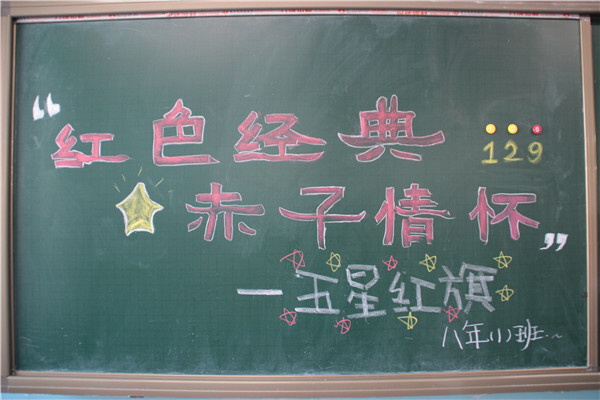 “红色经典
129
赤子情怀”
一五星红旗
八年(1)班~